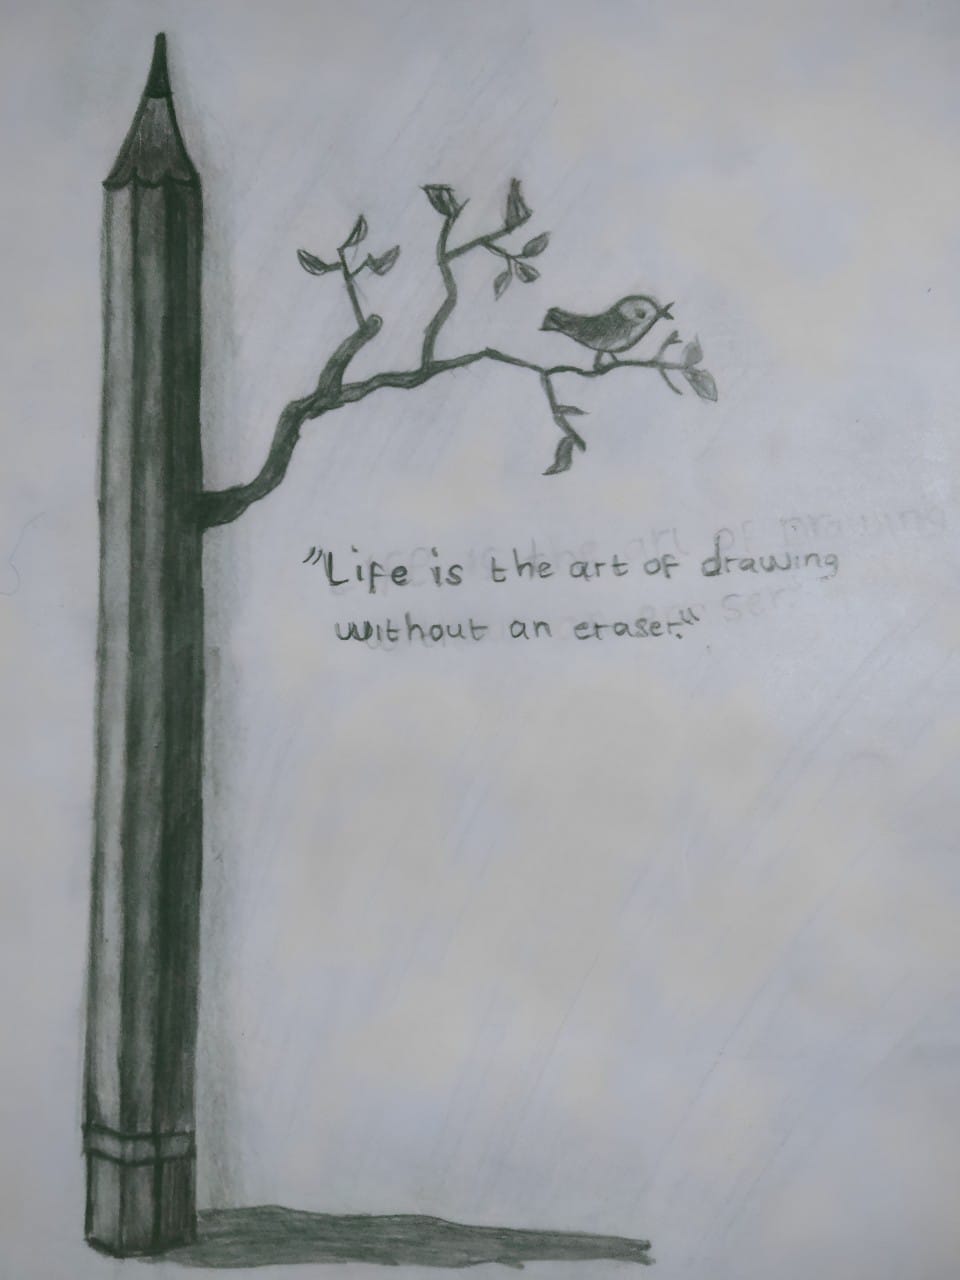 "Life is the art of drawing
without an eraser."